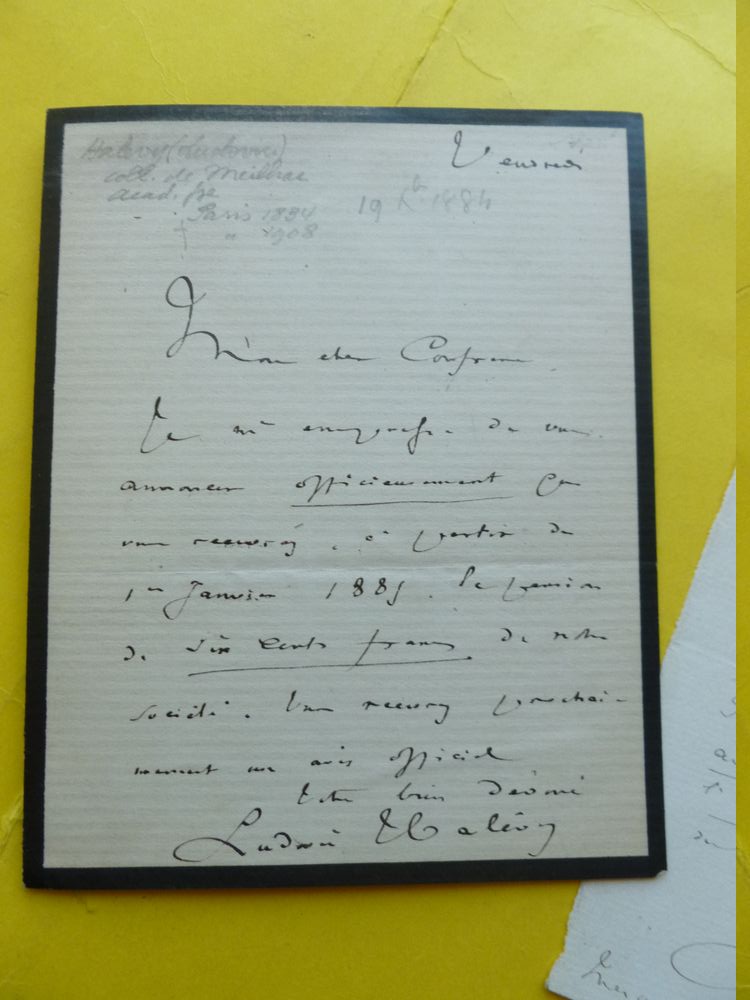 Halévy (Ludovic)
coll. de Meilhac
acad. fse
Paris 1834
† " 1908
Vendredi
19 Xbre 1884
Mon cher Confrère,
Je m'empresse de vous
annoncer officieusement que
vous recevrez, à partir du
1er Janvier 1885, la pension
de six cents francs de notre
société. Vous recevrez prochai-
nement un avis officiel
Votre bien dévoué
Ludovic Halévy